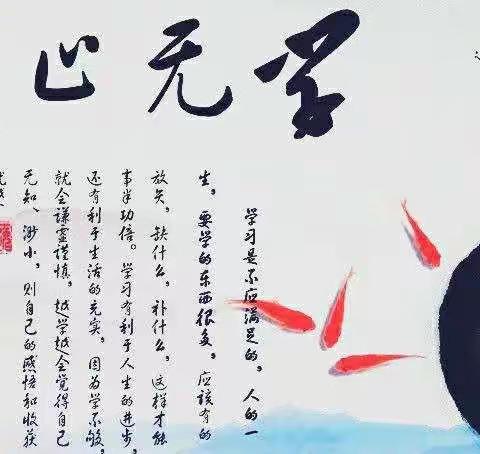 学无止
学习是不应满足的，人的一
生，要学的东西很多，应该有的
放矢，缺什么，补什么，这样才能
事半功倍。学习有利于人生的进步，
还有利于生活的充实，因为学不够，
就会谦虚谨慎，越学越会觉得自己
无知、渺小，则自己的感悟和收获